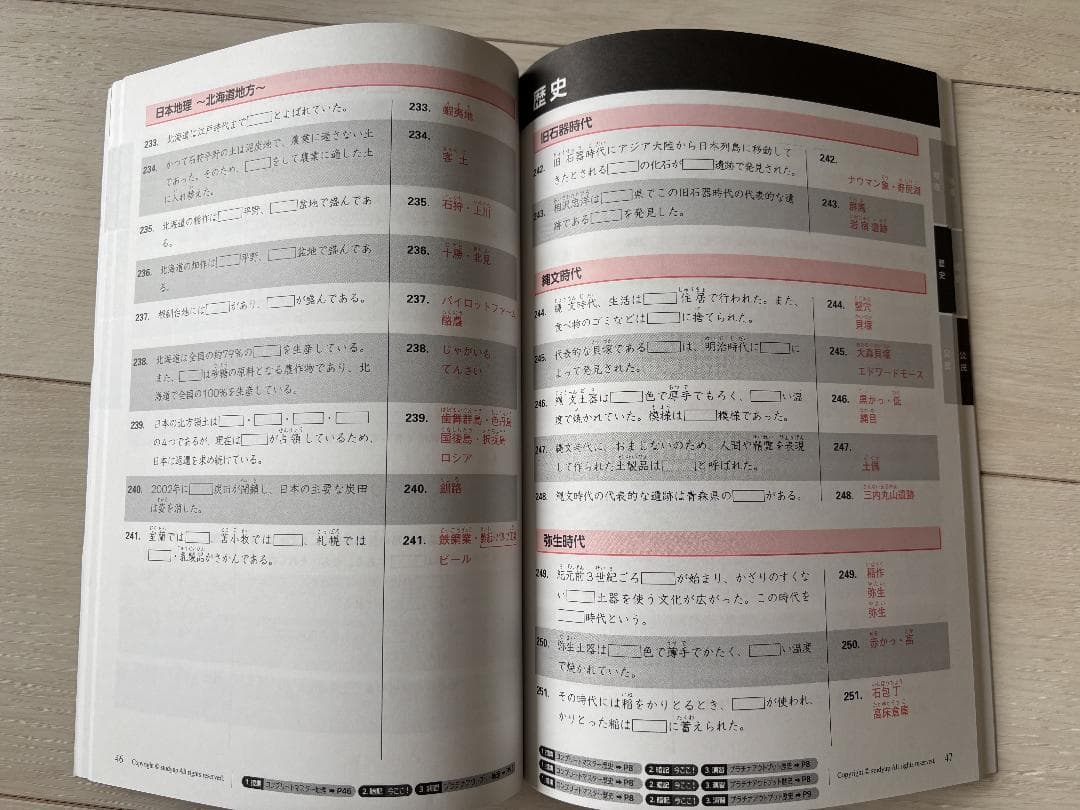 日本地理 ～北海道地方～
233. 北海道は江戸時代まで□とよばれていた。
233. 蝦夷地
234. かつて石狩平野の土は泥炭地で、農業に適さない土
であった。そのため、□をして農業に適した土
に入れ替えた。
234.
客土
235. 北海道の稲作は□平野、□盆地で盛んであ
る。
235. 石狩・上川
236. 北海道の畑作は□平野、□盆地で盛んであ
る。
236. 十勝・北見
237. 根釧台地には□があり、□が盛んである。
237. パイロットファーム
酪農
238. 北海道は全国の約79%の□を生産している。
また、□は砂糖の原料となる農作物であり、北
海道で全国の100%を生産している。
238. じゃがいも
てんさい
239. 日本の北方領土は□・□・□・□
の4つであるが、現在は□が占領しているため、
日本は返還を求め続けている。
239. 歯舞群島・色丹島
国後島・択捉島
ロシア
240. 2002年に□炭田が閉鎖し、日本の主要な炭田
は姿を消した。
240. 釧路
241. 室蘭では□、苫小牧では□、札幌では
□・乳製品がさかんである。
241. 鉄鋼業・
ビール
46 Copyright © studyup All rights reserved.
1.授業 コンプリートマスター地理 ➡ P46 2.暗記 今ここ! 3.演習
歴史
旧石器時代
242. 旧石器時代にアジア大陸から日本列島に移動して
きたとされる□の化石が□遺跡で発見された。
242.
ナウマン象・野尻湖
243. 相沢忠洋は□県でこの旧石器時代の代表的な遺
跡である□を発見した。
243. 群馬
岩宿遺跡
縄文時代
244. 縄文時代、生活は□住居で行われた。また、
食べ物のゴミなどは□に捨てられた。
244. 竪穴
貝塚
245. 代表的な貝塚である□は、明治時代に□に
よって発見された。
245. 大森貝塚
エドワードモース
246. 縄文土器は□色で厚手でもろく、□い温
度で焼かれていた。模様は□模様であった。
246. 黒かっ・低
縄目
247. 縄文時代に、おまじないのため、人間や精霊を表現
して作られた土製品は□と呼ばれた。
247.
土偶
248. 縄文時代の代表的な遺跡は青森県の□がある。
248. 三内丸山遺跡
弥生時代
249. 紀元前3世紀ごろ□が始まり、かざりのすくな
い□土器を使う文化が広がった。この時代を
□時代という。
249. 稲作
弥生
弥生
250. 弥生土器は□色で薄手でかたく、□い温度
で焼かれていた。
250. 赤かっ・高
251. その時代には稲をかりとるとき、□が使われ、
かりとった稲は□に蓄えられた。
251. 石包丁
高床倉庫
1.授業 コンプリートマスター歴史 ➡ P8 2.暗記 今ここ! 3.演習 プラチナアウトプット歴史 ➡ P8
1.授業 コンプリートマスター歴史 ➡ P8 2.暗記 今ここ! 3.演習 プラチナアウトプット歴史 ➡ P8
1.授業 コンプリートマスター歴史 ➡ P8 2.暗記 今ここ! 3.演習 プラチナアウトプット歴史 ➡ P9
Copyright © studyup All rights reserved. 47
歴史
公民